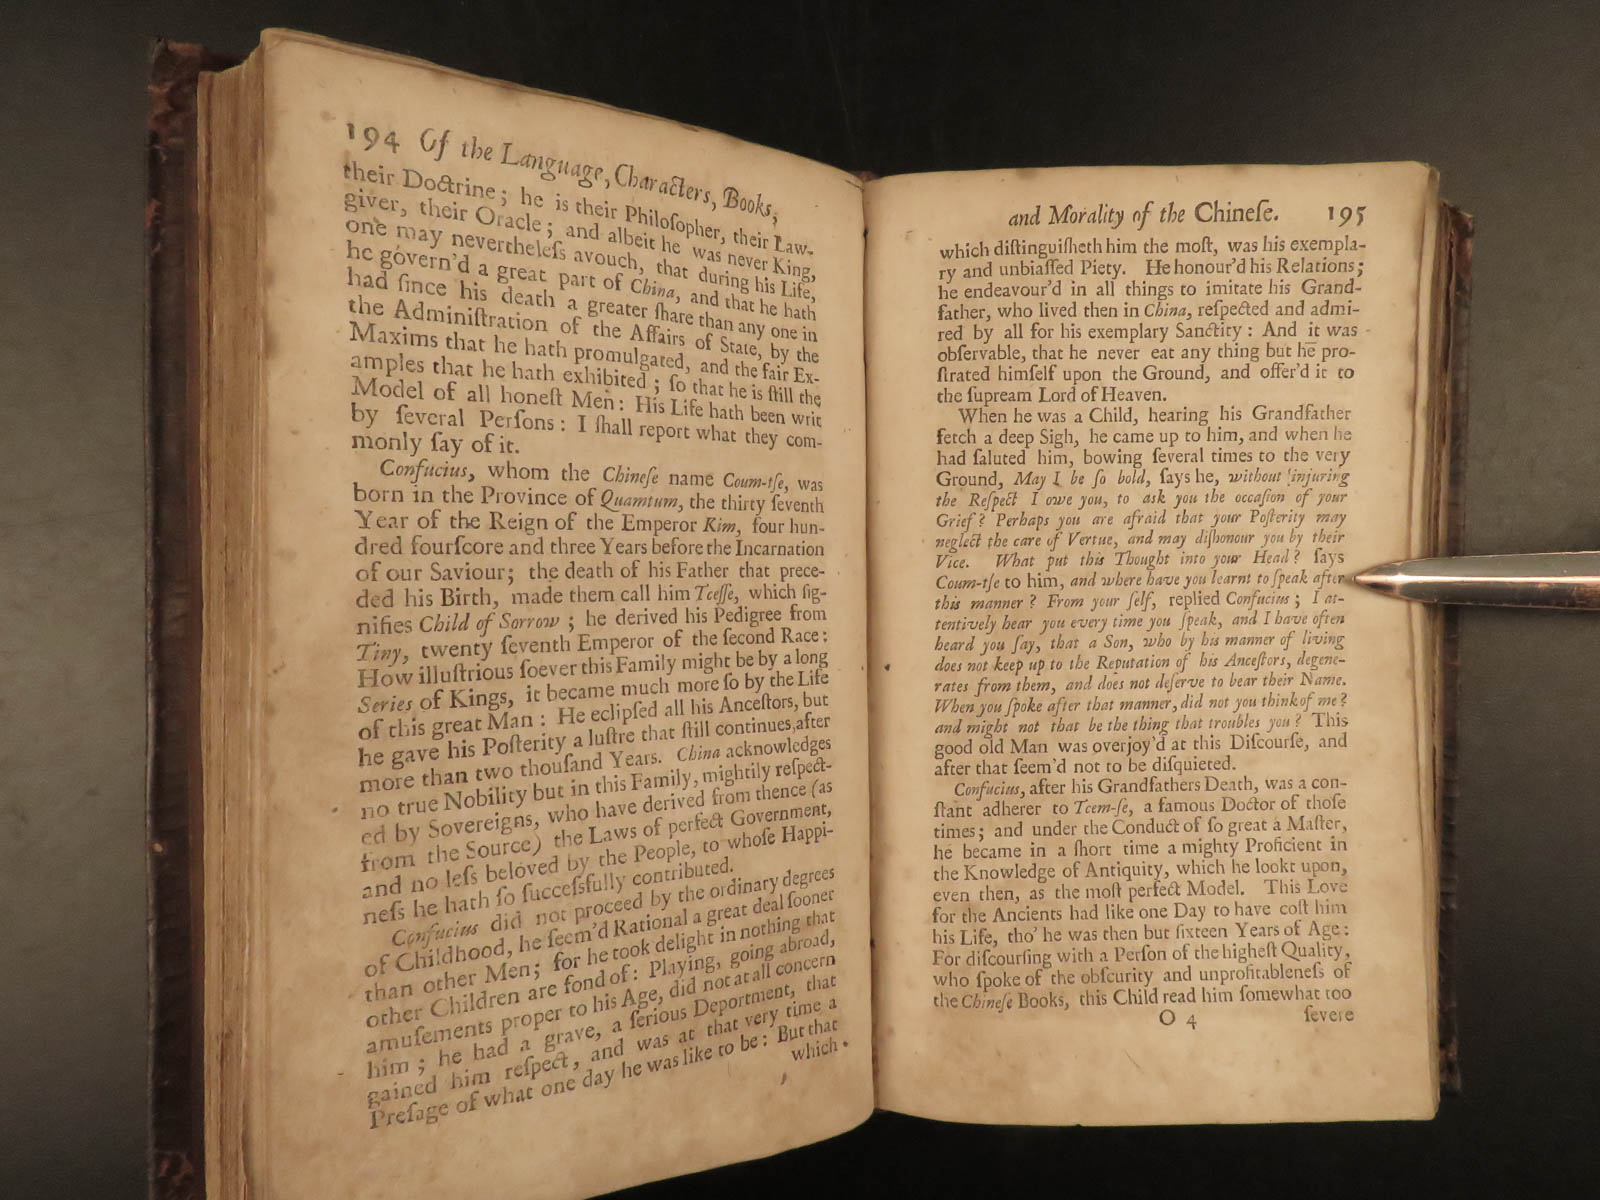 194 Of the Language, Characters, Books,
their Doctrine; he is their Philoſopher, their Law-
giver, their Oracle; and albeit he was never King,
one may nevertheleſs avouch, that during his Life,
he govern'd a great part of China, and that he hath
had ſince his death a greater ſhare than any one in
the Adminiſtration of the Affairs of State, by the
Maxims that he hath promulgated, and the fair Ex-
amples that he hath exhibited; ſo that he is ſtill the
Model of all honeſt Men: His Life hath been writ
by ſeveral Perſons: I ſhall report what they com-
monly ſay of it.
Confucius, whom the Chineſe name Coum-tſe, was
born in the Province of Quamtum, the thirty ſeventh
Year of the Reign of the Emperor Kim, four hun-
dred fourſcore and three Years before the Incarnation
of our Saviour; the death of his Father that prece-
ded his Birth, made them call him Tceſſe, which ſig-
nifies Child of Sorrow; he derived his Pedigree from
Tiny, twenty ſeventh Emperor of the ſecond Race:
How illuſtrious ſoever this Family might be by a long
Series of Kings, it became much more ſo by the Life
of this great Man: He eclipſed all his Anceſtors, but
he gave his Poſterity a luſtre that ſtill continues, after
more than two thouſand Years. China acknowledges
no true Nobility but in this Family, mightily reſpect-
ed by Sovereigns, who have derived from thence (as
from the Source) the Laws of perfect Government,
and no leſs beloved by the People, to whoſe Happi-
neſs he hath ſo ſucceſsfully contributed.
Confucius did not proceed by the ordinary degrees
of Childhood, he ſeem'd Rational a great deal ſooner
than other Men; for he took delight in nothing that
other Children are fond of: Playing, going abroad,
amuſements proper to his Age, did not at all concern
him; he had a grave, a ſerious Deportment, that
gained him reſpect, and was at that very time a
Preſage of what one day he was like to be: But that
which
and Morality of the Chineſe. 195
which diſtinguiſheth him the moſt, was his exempla-
ry and unbiaſſed Piety. He honour'd his Relations;
he endeavour'd in all things to imitate his Grand-
father, who lived then in China, reſpected and admi-
red by all for his exemplary Sanctity: And it was
obſervable, that he never eat any thing but he pro-
ſtrated himſelf upon the Ground, and offer'd it to
the ſupream Lord of Heaven.
When he was a Child, hearing his Grandfather
fetch a deep Sigh, he came up to him, and when he
had ſaluted him, bowing ſeveral times to the very
Ground, May I be ſo bold, ſays he, without injuring
the Reſpect I owe you, to ask you the occaſion of your
Grief? Perhaps you are afraid that your Poſterity may
neglect the care of Vertue, and may diſhonour you by their
Vice. What put this Thought into your Head? ſays
Coum-tſe to him, and where have you learnt to ſpeak after
this manner? From your ſelf, replied Confucius; I at-
tentively hear you every time you ſpeak, and I have often
heard you ſay, that a Son, who by his manner of living
does not keep up to the Reputation of his Anceſtors, degene-
rates from them, and does not deſerve to bear their Name.
When you ſpoke after that manner, did not you think of me?
and might not that be the thing that troubles you? This
good old Man was overjoy'd at this Diſcourſe, and
after that ſeem'd not to be diſquieted.
Confucius, after his Grandfathers Death, was a con-
ſtant adherer to Tcem-ſe, a famous Doctor of thoſe
times; and under the Conduct of ſo great a Maſter,
he became in a ſhort time a mighty Proficient in
the Knowledge of Antiquity, which he lookt upon,
even then, as the moſt perfect Model. This Love
for the Ancients had like one Day to have coſt him
his Life, tho' he was then but ſixteen Years of Age:
For diſcourſing with a Perſon of the higheſt Quality,
who ſpoke of the obſcurity and unprofitableneſs of
the Chineſe Books, this Child read him ſomewhat too
O 4 ſevere